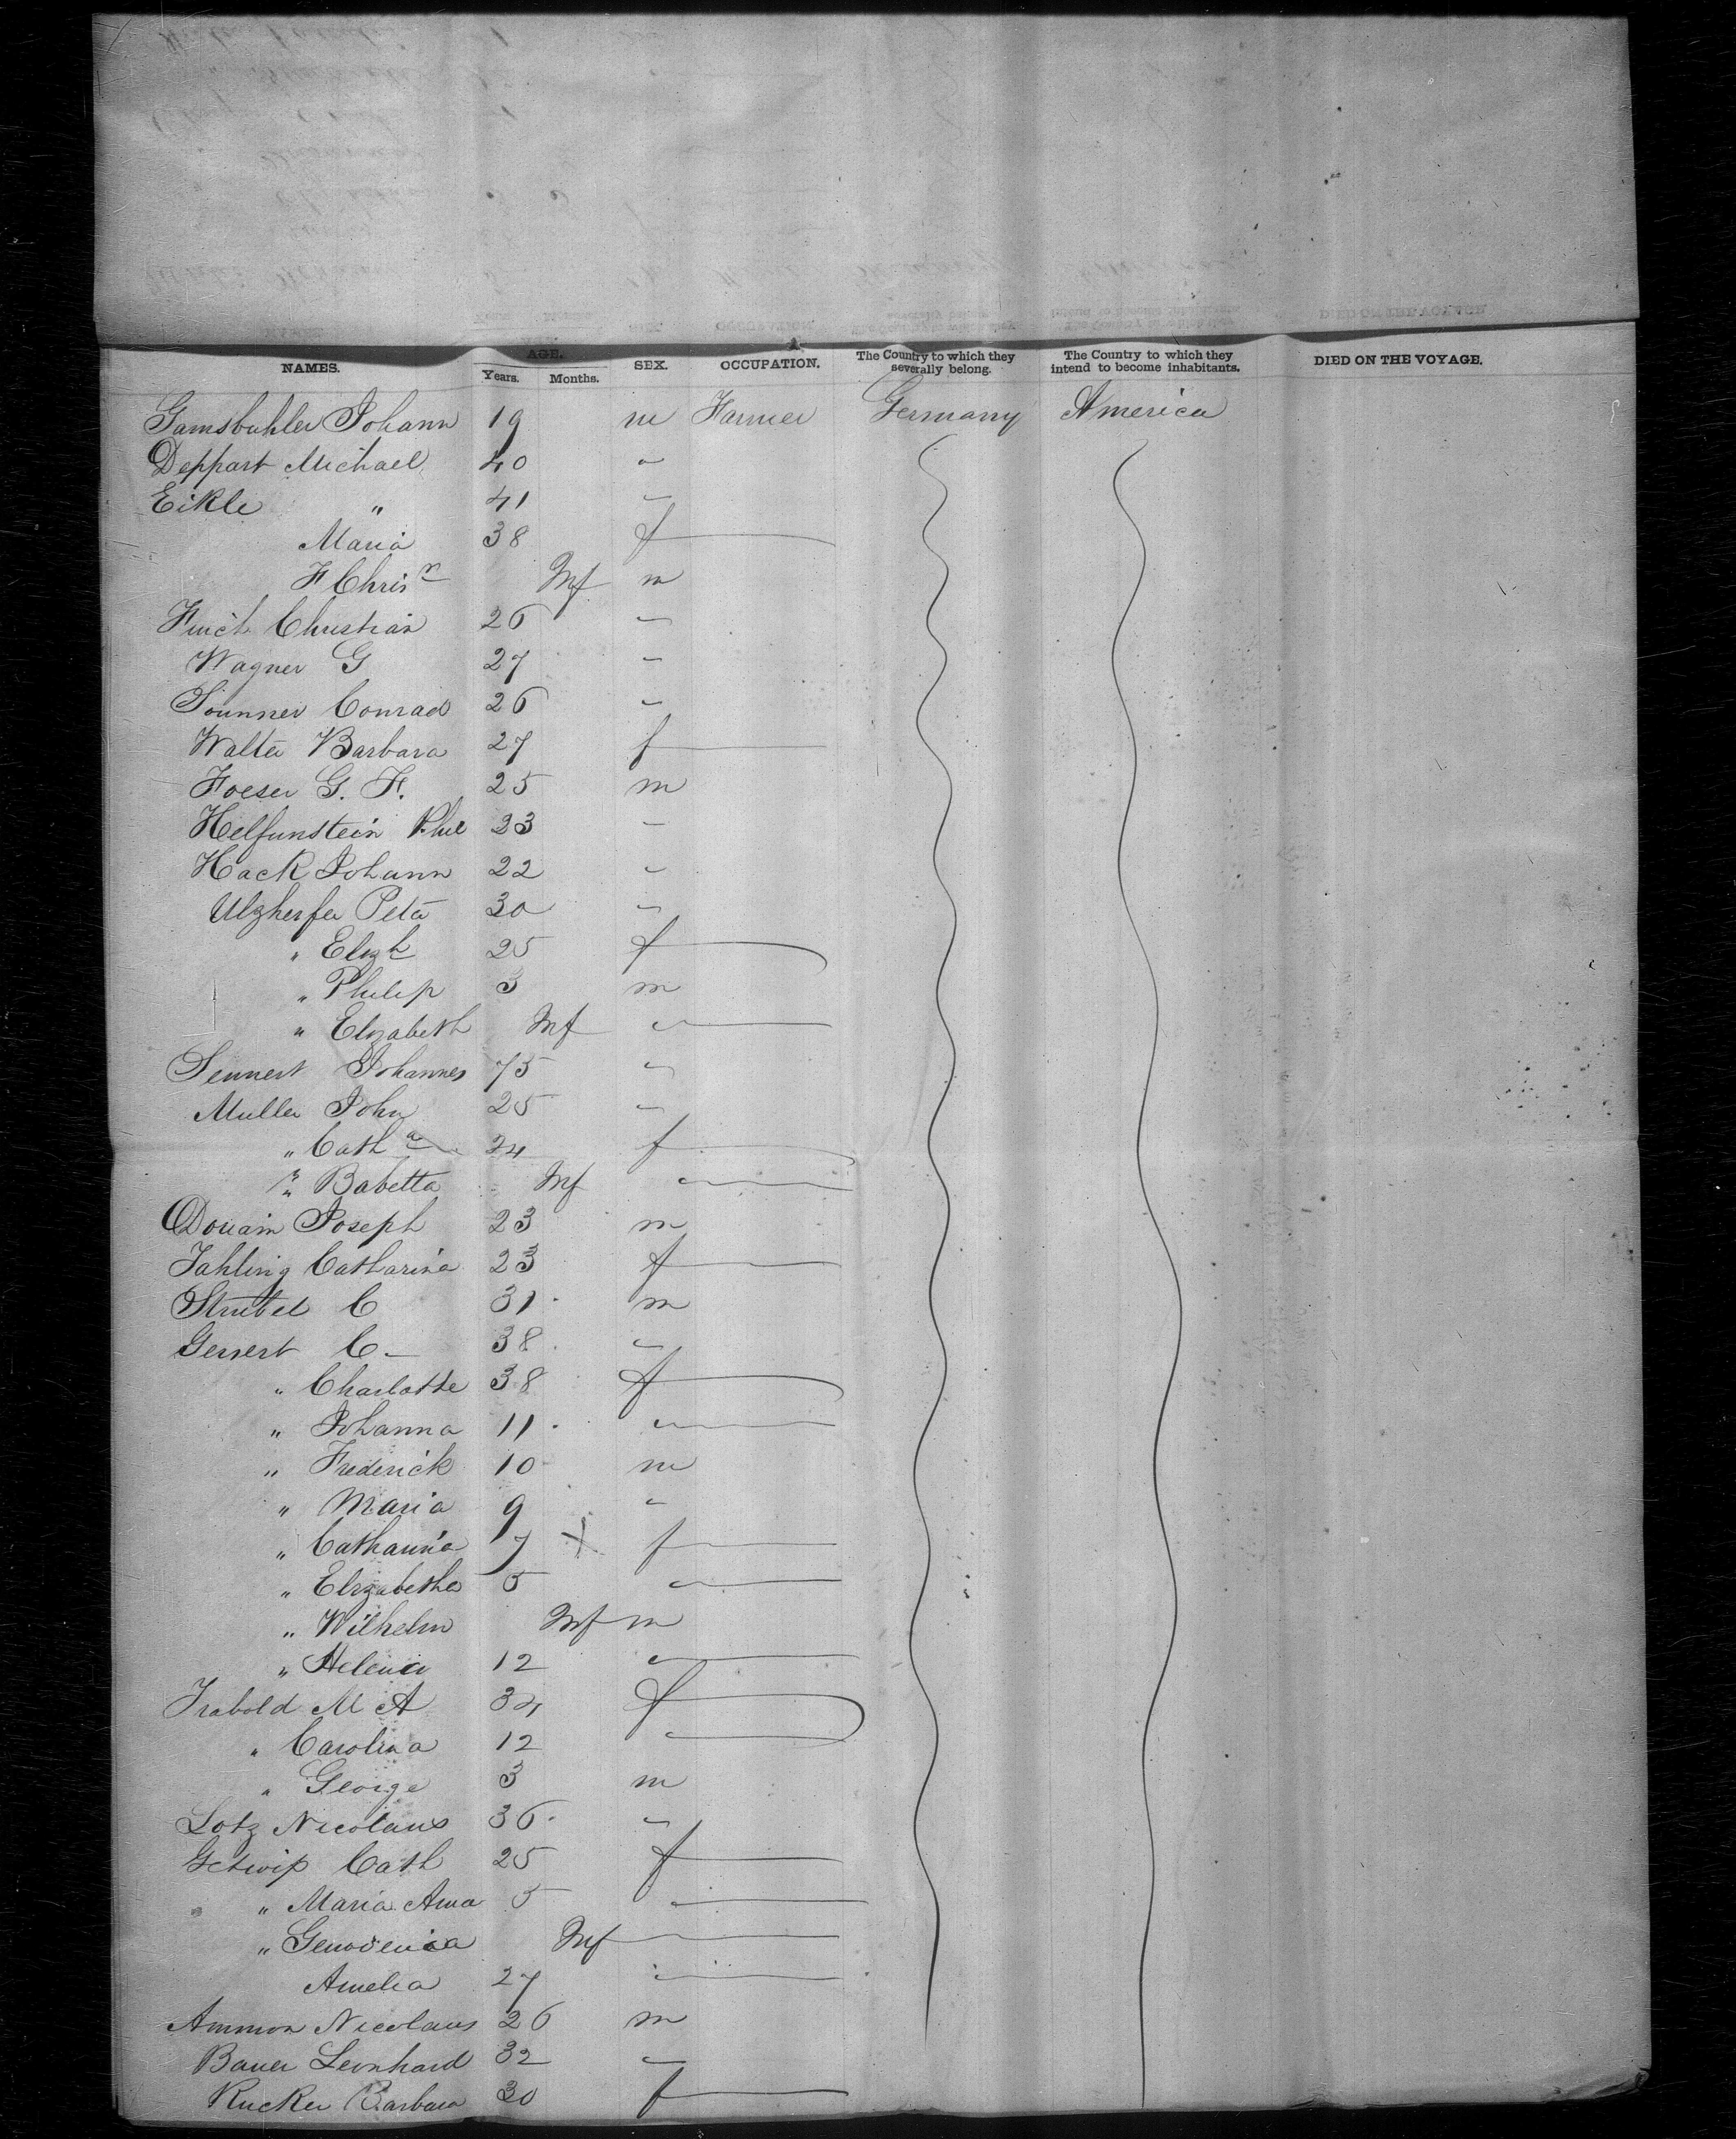 NAMES. AGE. Years. Months. SEX. OCCUPATION. The Country to which they severally belong. The Country to which they intend to become inhabitants. DIED ON THE VOYAGE.
Gamsbuhler Johann 19 m Farmer Germany America
Deppart Michael 40 "
Eikle " 41 "
Maria 38 f
F Chrisn Inf m
Christian 26 "
Wagner G 27 "
Conrad 26 "
Walter Barbara 27 f
Foeser G. F. 25 m
Helfunstein Phil 23 "
Hack Johann 22 "
Peter 30 "
" Elizh 25 f
" Philip 3 m
" Elizabeth Inf "
Sennert Johannes 75 "
Muller John 25 "
" Catha 24 f
" Babetta Inf "
Douain Joseph 23 m
Jahling Catharina 23 f
Strubel C 31 m
Gersert C - 38 "
" Charlotte 38 f
" Johanna 11 "
" Frederick 10 m
" Maria 9 "
" Catharina 7 X f
" Elizabetha 5 "
" Wilhelm Inf m
" Helena 12 "
Trabold M A 34 f
" Carolina 12 "
" George 3 m
Lotz Nicolaus 36 "
Cath 25 f
" Maria Anna 5 "
" Inf
Amelia 27 "
Ammon Nicolaus 26 m
Bauer Leonhard 32 "
Rucker Barbara 30 f